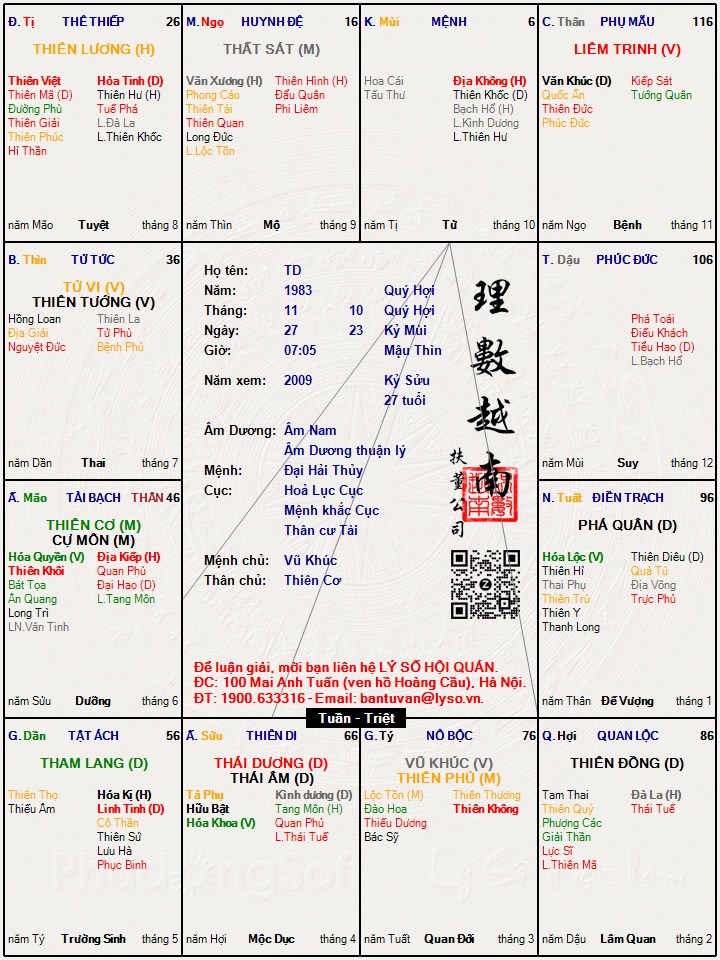 Đ. Tị THÊ THIẾP 26
THIÊN LƯƠNG (H)
Thiên Việt Hỏa Tinh (D)
Thiên Mã (D) Thiên Hư (H)
Đường Phù Tuế Phá
Thiên Giải L.Đà La
Thiên Phúc L.Thiên Khốc
Hỉ Thần
năm Mão Tuyệt tháng 8
M. Ngọ HUYNH ĐỆ 16
THẤT SÁT (M)
Văn Xương (H) Thiên Hình (H)
Phong Cáo Đẩu Quân
Thiên Tài Phi Liêm
Thiên Quan
Long Đức
L.Lộc Tồn
năm Thìn Mộ tháng 9
K. Mùi MỆNH 6
Hoa Cái Địa Không (H)
Tấu Thư Thiên Khốc (D)
Bạch Hổ (H)
L.Kình Dương
L.Thiên Hư
năm Tị Tử tháng 10
C. Thân PHỤ MẪU 116
LIÊM TRINH (V)
Văn Khúc (D) Kiếp Sát
Quốc Ấn Tướng Quân
Thiên Đức
Phúc Đức
năm Ngọ Bệnh tháng 11
B. Thìn TỬ TỨC 36
TỬ VI (V)
THIÊN TƯỚNG (V)
Hồng Loan Thiên La
Địa Giải Tử Phù
Nguyệt Đức Bệnh Phù
năm Dần Thai tháng 7
Họ tên: TD
Năm: 1983 Quý Hợi
Tháng: 11 10 Quý Hợi
Ngày: 27 23 Kỷ Mùi
Giờ: 07:05 Mậu Thìn
Năm xem: 2009 Kỷ Sửu
27 tuổi
Âm Dương: Âm Nam
Âm Dương thuận lý
Mệnh: Đại Hải Thủy
Cục: Hoả Lục Cục
Mệnh khắc Cục
Thân cư Tài
Mệnh chủ: Vũ Khúc
Thân chủ: Thiên Cơ
理數越南
扶董公司
Để luận giải, mời bạn liên hệ LÝ SỐ HỘI QUÁN.
ĐC: 100 Mai Anh Tuấn (ven hồ Hoàng Cầu), Hà Nội.
ĐT: 1900.633316 - Email: bantuvan@lyso.vn.
Tuần - Triệt
T. Dậu PHÚC ĐỨC 106
Phá Toái
Điếu Khách
Tiểu Hao (D)
L.Bạch Hổ
năm Mùi Suy tháng 12
Ấ. Mão TÀI BẠCH THÂN 46
THIÊN CƠ (M)
CỰ MÔN (M)
Hóa Quyền (V) Địa Kiếp (H)
Thiên Khôi Quan Phù
Bát Tọa Đại Hao (D)
Ân Quang L.Tang Môn
Long Trì
LN.Văn Tinh
năm Sửu Dưỡng tháng 6
N. Tuất ĐIỀN TRẠCH 96
PHÁ QUÂN (D)
Hóa Lộc (V) Thiên Diêu (D)
Thiên Hỉ Quả Tú
Thai Phụ Địa Võng
Thiên Trù Trực Phù
Thiên Y
Thanh Long
năm Thân Đế Vượng tháng 1
G. Dần TẬT ÁCH 56
THAM LANG (D)
Thiên Thọ Hóa Kị (H)
Thiếu Âm Linh Tinh (D)
Cô Thần
Thiên Sứ
Lưu Hà
Phục Binh
năm Tý Trường Sinh tháng 5
Ấ. Sửu THIÊN DI 66
THÁI DƯƠNG (D)
THÁI ÂM (D)
Tả Phụ Kình dương (D)
Hữu Bật Tang Môn (H)
Hóa Khoa (V) Quan Phủ
L.Thái Tuế
năm Hợi Mộc Dục tháng 4
G. Tý NÔ BỘC 76
VŨ KHÚC (V)
THIÊN PHỦ (M)
Lộc Tồn (M) Thiên Thương
Đào Hoa Thiên Không
Thiếu Dương
Bác Sỹ
năm Tuất Quan Đới tháng 3
Q. Hợi QUAN LỘC 86
THIÊN ĐỒNG (D)
Tam Thai Đà La (H)
Thiên Quý Thái Tuế
Phượng Các
Giải Thần
Lực Sĩ
L.Thiên Mã
năm Dậu Lâm Quan tháng 2